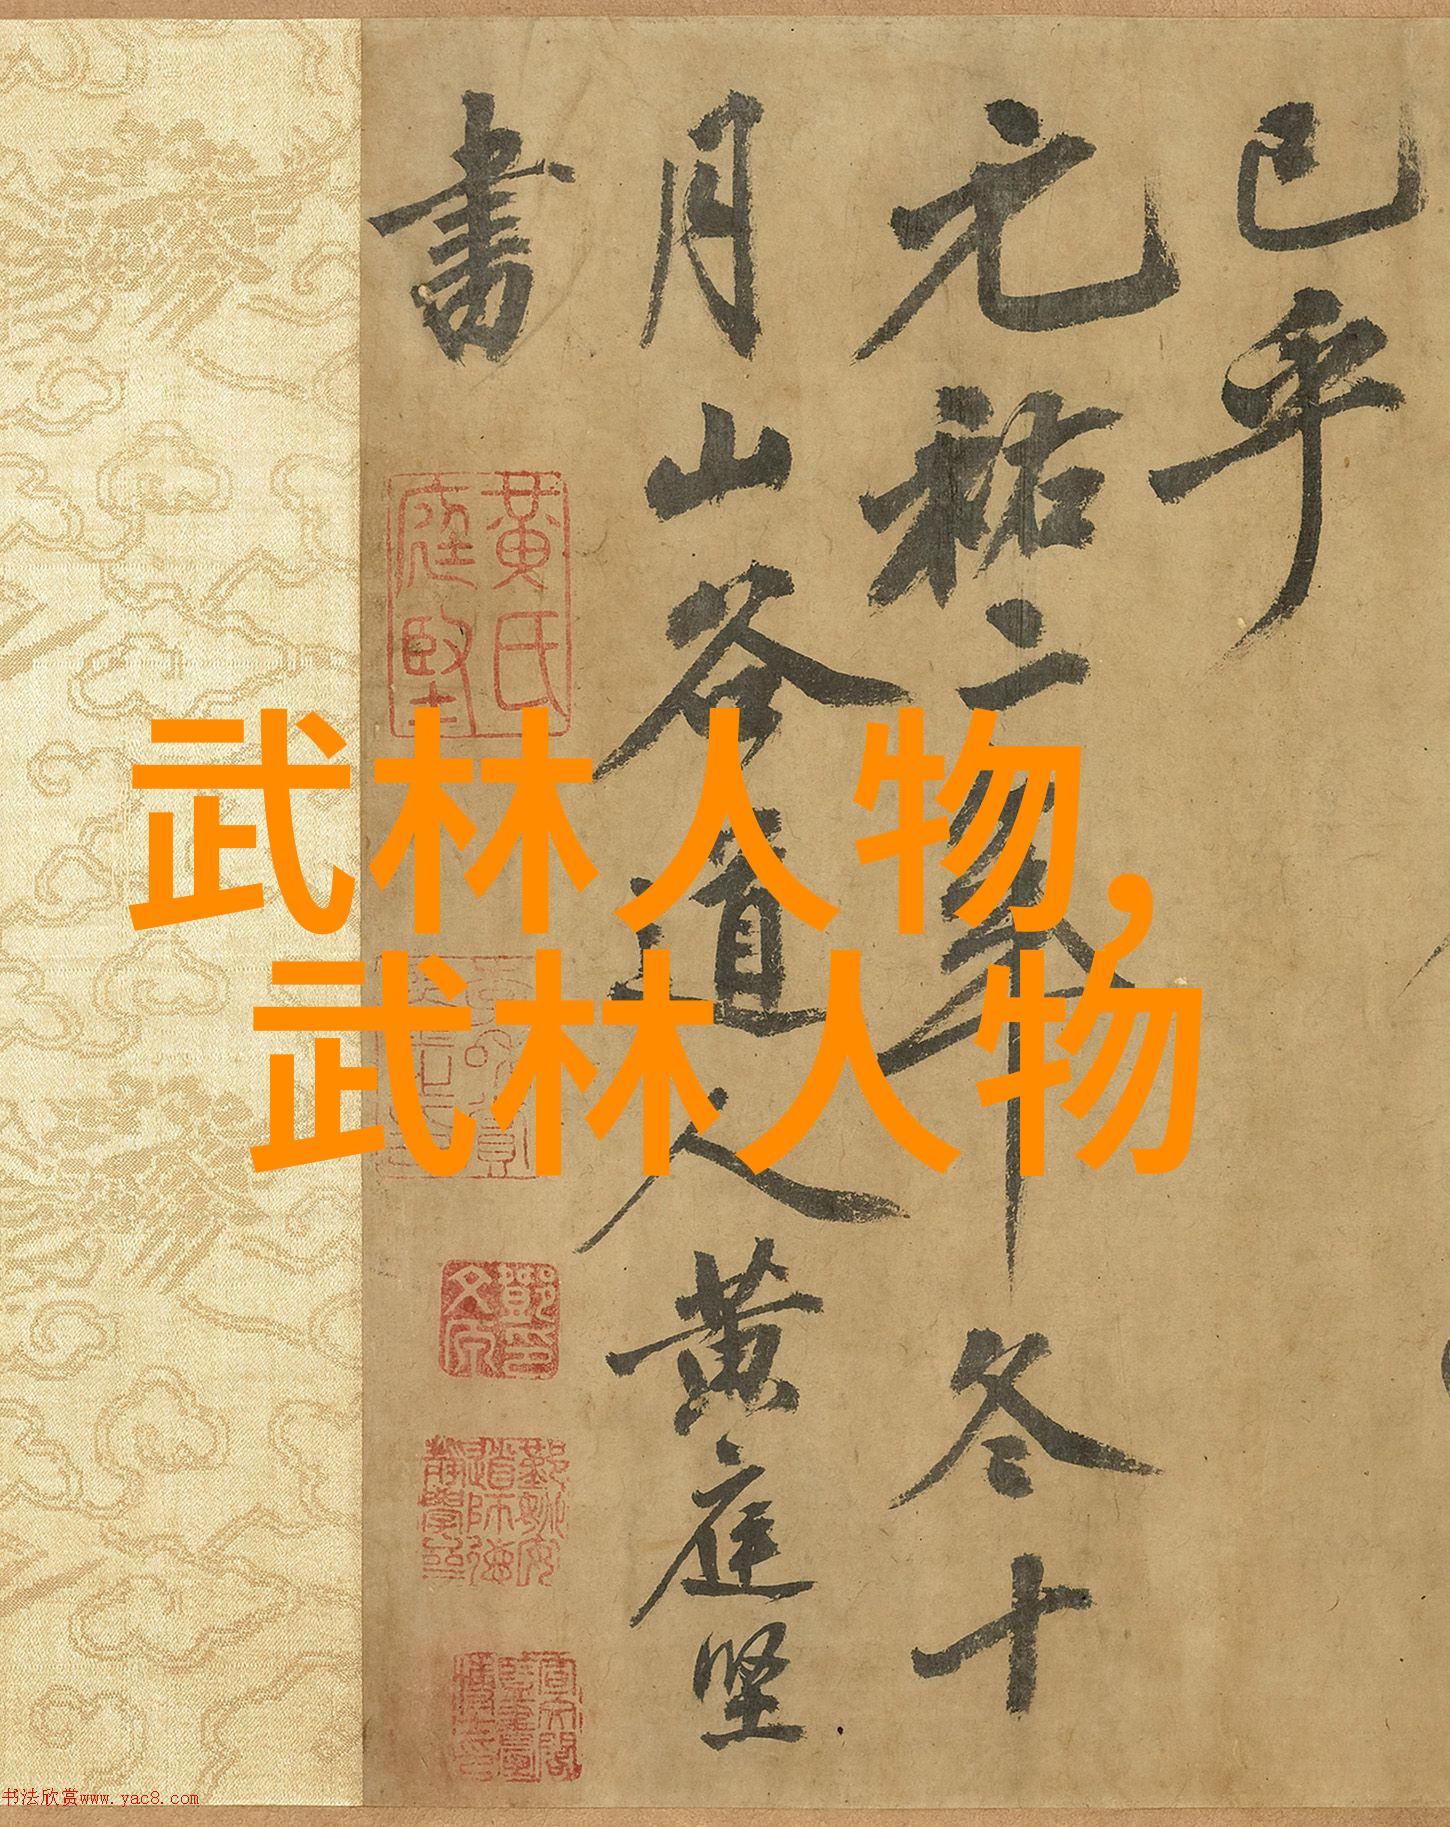 已乎
元祐二年冬十
月山谷道人黄庭坚
書
黄氏庭堅
武林人物,
武林人物
书法欣赏www.yac8.com